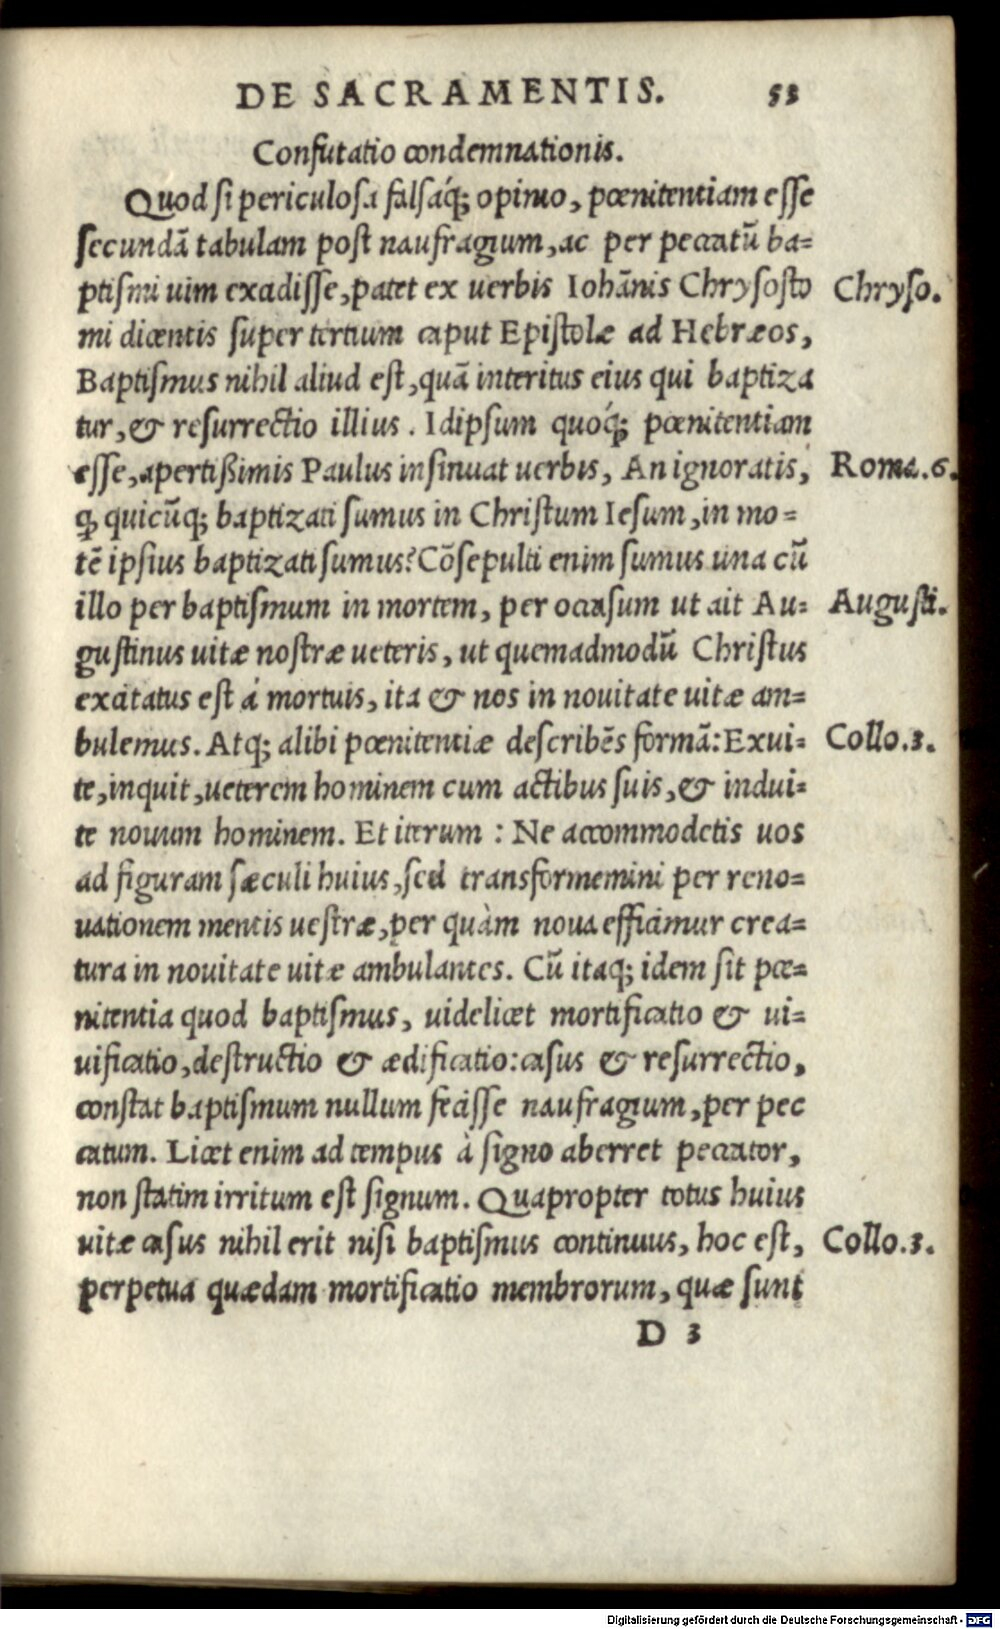 DE SACRAMENTIS. 53
Confutatio condemnationis.
Quod si periculosa falsaq́; opinio, pœnitentiam esse
secundā tabulam post naufragium, ac per peccatū ba=
ptismi uim excidisse, patet ex uerbis Iohānis Chrysosto
Chryso.
mi dicentis super tertium caput Epistolæ ad Hebræos,
Baptismus nihil aliud est, quā interitus eius qui baptiza
tur, & resurrectio illius. Idipsum quoq́; pœnitentiam
esse, apertißimis Paulus insinuat uerbis, An ignoratis,
Roma. 6.
ꝙ quicūq; baptizati sumus in Christum Iesum, in mo=
tē ipsius baptizati sumus? Cōsepulti enim sumus una cū
illo per baptismum in mortem, per occasum ut ait Au=
Augusti.
gustinus uitæ nostræ ueteris, ut quemadmodū Christus
excitatus est á mortuis, ita & nos in nouitate uitæ am=
bulemus. Atq; alibi pœnitentiæ describēs formā: Exui=
Collo. 3.
te, inquit, ueterem hominem cum actibus suis, & indui=
te nouum hominem. Et iterum : Ne accommodetis uos
ad figuram sæculi huius, sed transformemini per reno=
uationem mentis uestræ, per quàm noua efficimur crea=
tura in nouitate uitæ ambulantes. Cū itaq; idem sit pœ=
nitentia quod baptismus, uidelicet mortificatio & ui=
uificatio, destructio & ædificatio: casus & resurrectio,
constat baptismum nullum fecisse naufragium, per pec
catum. Licet enim ad tempus à signo aberret peccator,
non statim irritum est signum. Quapropter totus huius
uitæ casus nihil erit nisi baptismus continuus, hoc est,
Collo. 3.
perpetua quædam mortificatio membrorum, quæ sunt
D 3
Digitalisierung gefördert durch die Deutsche Forschungsgemeinschaft - DFG